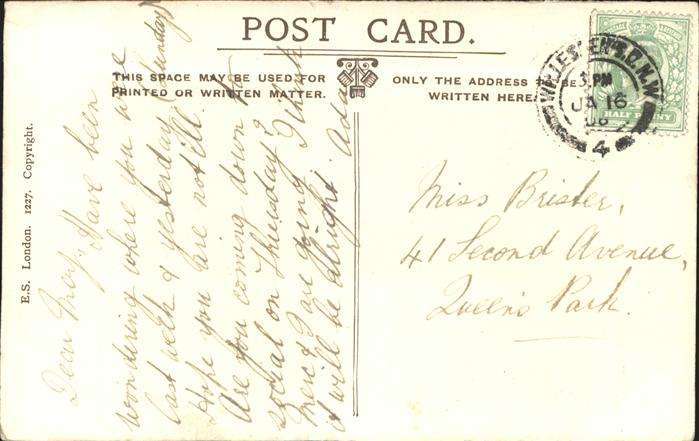 POST CARD.
THIS SPACE MAY BE USED FOR
PRINTED OR WRITTEN MATTER.
ONLY THE ADDRESS TO BE
WRITTEN HERE.
E.S. London. 1227. Copyright.
Dear Mery, Have been
wondering where you were
last week & yesterday (Sunday)
Hope you are not ill.
Are you coming down to
social on Thursday?
& I are going I think
it will be allright Ada
WILLESDEN S.O. N.W.
3 PM
JA 16
4
HALF PENNY
Miss Brister,
41 Second Avenue,
Queen's Park.